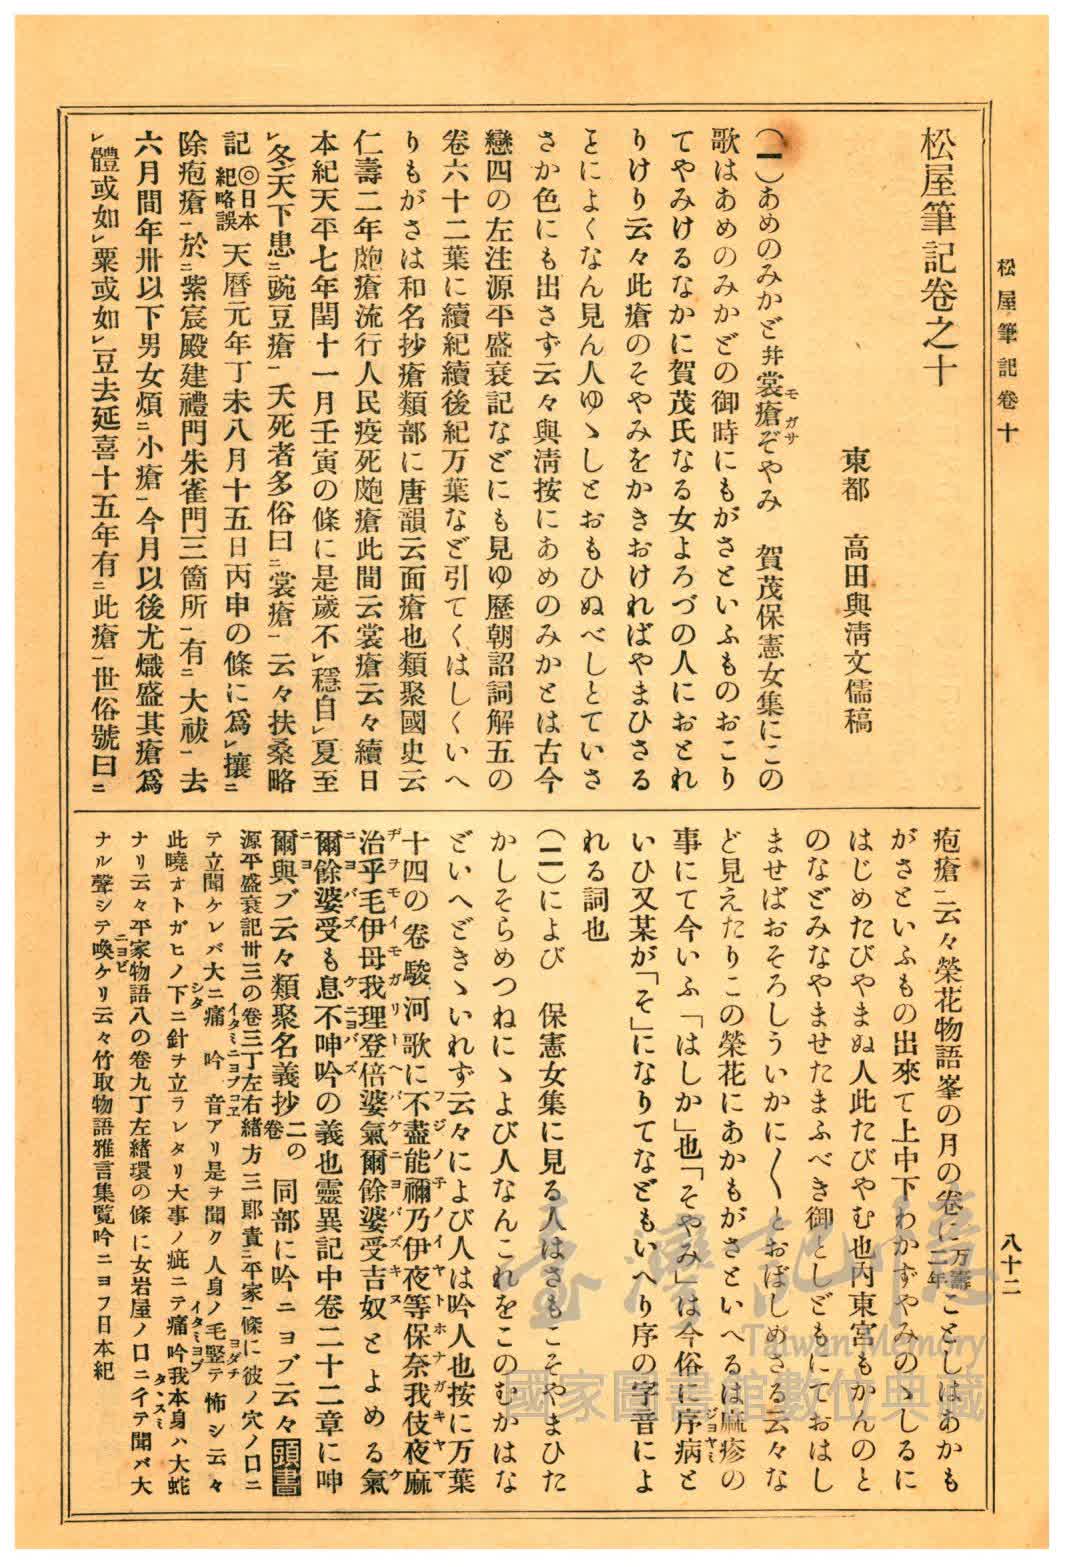 松屋筆記卷十
八十二
松屋筆記卷之十
東都　高田與淸文儒稿
(一)あめのみかど幷裳瘡ぞやみ　賀茂保憲女集にこの
モガサ
歌はあめのみかどの御時にもがさといふものおこり
てやみけるなかに賀茂氏なる女よろづの人におとれ
りけり云々此瘡のそやみをかきおければやまひさる
ことによくなん見ん人ゆゝしとおもひぬべしとていさ
さか色にも出さず云々與淸按にあめのみかとは古今
戀四の左注源平盛衰記などにも見ゆ歷朝詔詞解五の
卷六十二葉に續紀續後紀万葉など引てくはしくいへ
りもがさは和名抄瘡類部に唐韻云面瘡也類聚國史云
仁壽二年皰瘡流行人民疫死皰瘡此間云裳瘡云々續日
本紀天平七年閏十一月壬寅の條に是歲不レ穩自レ夏至
レ冬天下患ニ豌豆瘡一夭死者多俗曰ニ裳瘡一云々扶桑略
記◎日本紀略誤天曆元年丁未八月十五日丙申の條に爲レ攘ニ
除疱瘡一於ニ紫宸殿建禮門朱雀門三箇所一有ニ大祓一去
六月間年卅以下男女煩ニ小瘡一今月以後尤熾盛其瘡爲
レ體或如レ粟或如レ豆去延喜十五年有ニ此瘡一世俗號曰ニ
疱瘡一云々榮花物語峯の月の卷に万壽二年ことしはあかも
がさといふもの出來て上中下わかずやみのゝしるに
はじめたびやまぬ人此たびやむ也內東宮もかんのと
のなどみなやませたまふべき御としどもにておはし
ませばおそろしういかに〱とおぼしめさる云々な
ど見えたりこの榮花にあかもがさといへるは麻疹の
事にて今いふ「はしか」也「そやみ」は今俗に序病と
ジヨヤミ
いひ又某が「そ」になりてなどもいへり序の字音によ
れる詞也
(二)によび　保憲女集に見る人はさもこそやまひた
かしそらめつねにゝよび人なんこれをこのむかはな
どいへどきゝいれず云々によび人は吟人也按に万葉
十四の卷駿河歌に不盡能禰乃伊夜等保奈我伎夜麻
フジノネノイヤトホナガキヤマ
治乎毛伊母我理登倍婆氣爾餘婆受吉奴とよめる氣
ヂヲモイモガリトヘバケニヨバズキヌ　ケ
爾餘婆受も息不呻吟の義也靈異記中卷二十二章に呻
ニヨバズ　ケニヨバズ
爾與ブ云々類聚名義抄二の卷同部に吟ニヨブ云々頭書
ニヨ
源平盛衰記卅三の卷三丁左右緖方三郞責ニ平家一條に彼ノ穴ノ口ニ
テ立聞ケレバ大ニ痛　吟　音アリ是ヲ聞ク人身ノ毛竪テ怖シ云々
イタミニヨブコヱ　ヨダチ
此曉オトガヒノ下ニ針ヲ立ラレタリ大事ノ疵ニテ痛吟我本身ハ大蛇
シタ　イタミヨブ
ナリ云々平家物語八の卷九丁左緖環の條に女岩屋ノ口ニイテ聞バ大
タヽズミ
ナル聲シテ喚ケリ云々竹取物語雅言集覧吟ニヨフ日本紀
ニヨビ
臺灣記憶
Taiwan Memory
國家圖書館數位典藏